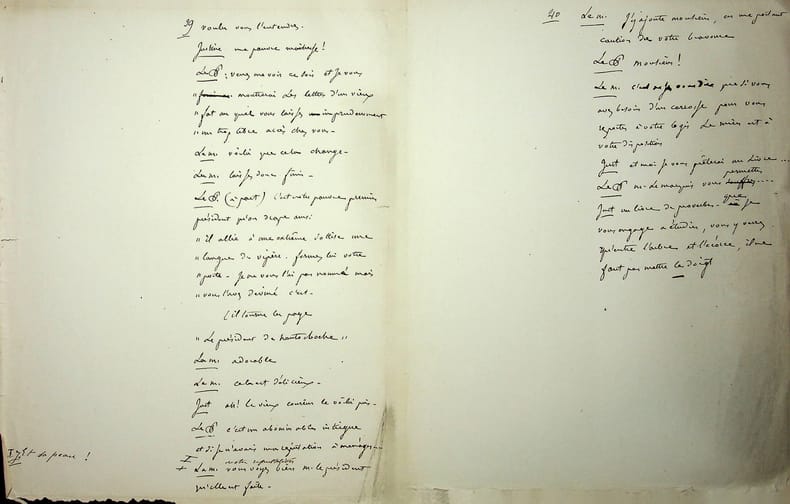 39 voulez vous l'entendre.
Justine ma pauvre maîtresse!
Le P. : venez me voir ce soir et je vous
" montrerai les lettres d'un vieux
" fat au quel vous laissez imprudemment
" un trop libre accès chez vous.
La m. voilà que cela change.
La m. laissez donc finir.
Le P. (à part) c'est votre pauvre premier
président qu'on drape ainsi
" il allie à une extrême sottise une
" langue de vipère. fermez lui votre
" porte. Je ne vous l'ai pas nommé mais
" vous l'avez deviné c'est.
(il tourne la page
" Le président de hauteclocke "
La m. adorable
La m. cela est délicieux.
Just ah! le vieux le voilà pris.
Le P. c'est un abominable intrigue
et si je n'avais ma réputation à ménager
I Et sa peau!
I votre réputation
+ La m. vous voyez bien m. le président
qu'elle est faite.
40 Le m. J'y ajoute monsieur, en me portant
caution de votre bravoure
Le P. monsieur!
Le m. que si vous
avez besoin d'un carosse pour vous
à votre logis le mien est à
votre disposition
Just et moi je vous prêterai un livre ...
Le P. m. le marquis vous permettez ....
Just un livre de proverbes. que je
vous engage à étudier, vous y verrez
qu'entre l'arbre et l'écorce, il ne
faut pas mettre le doigt